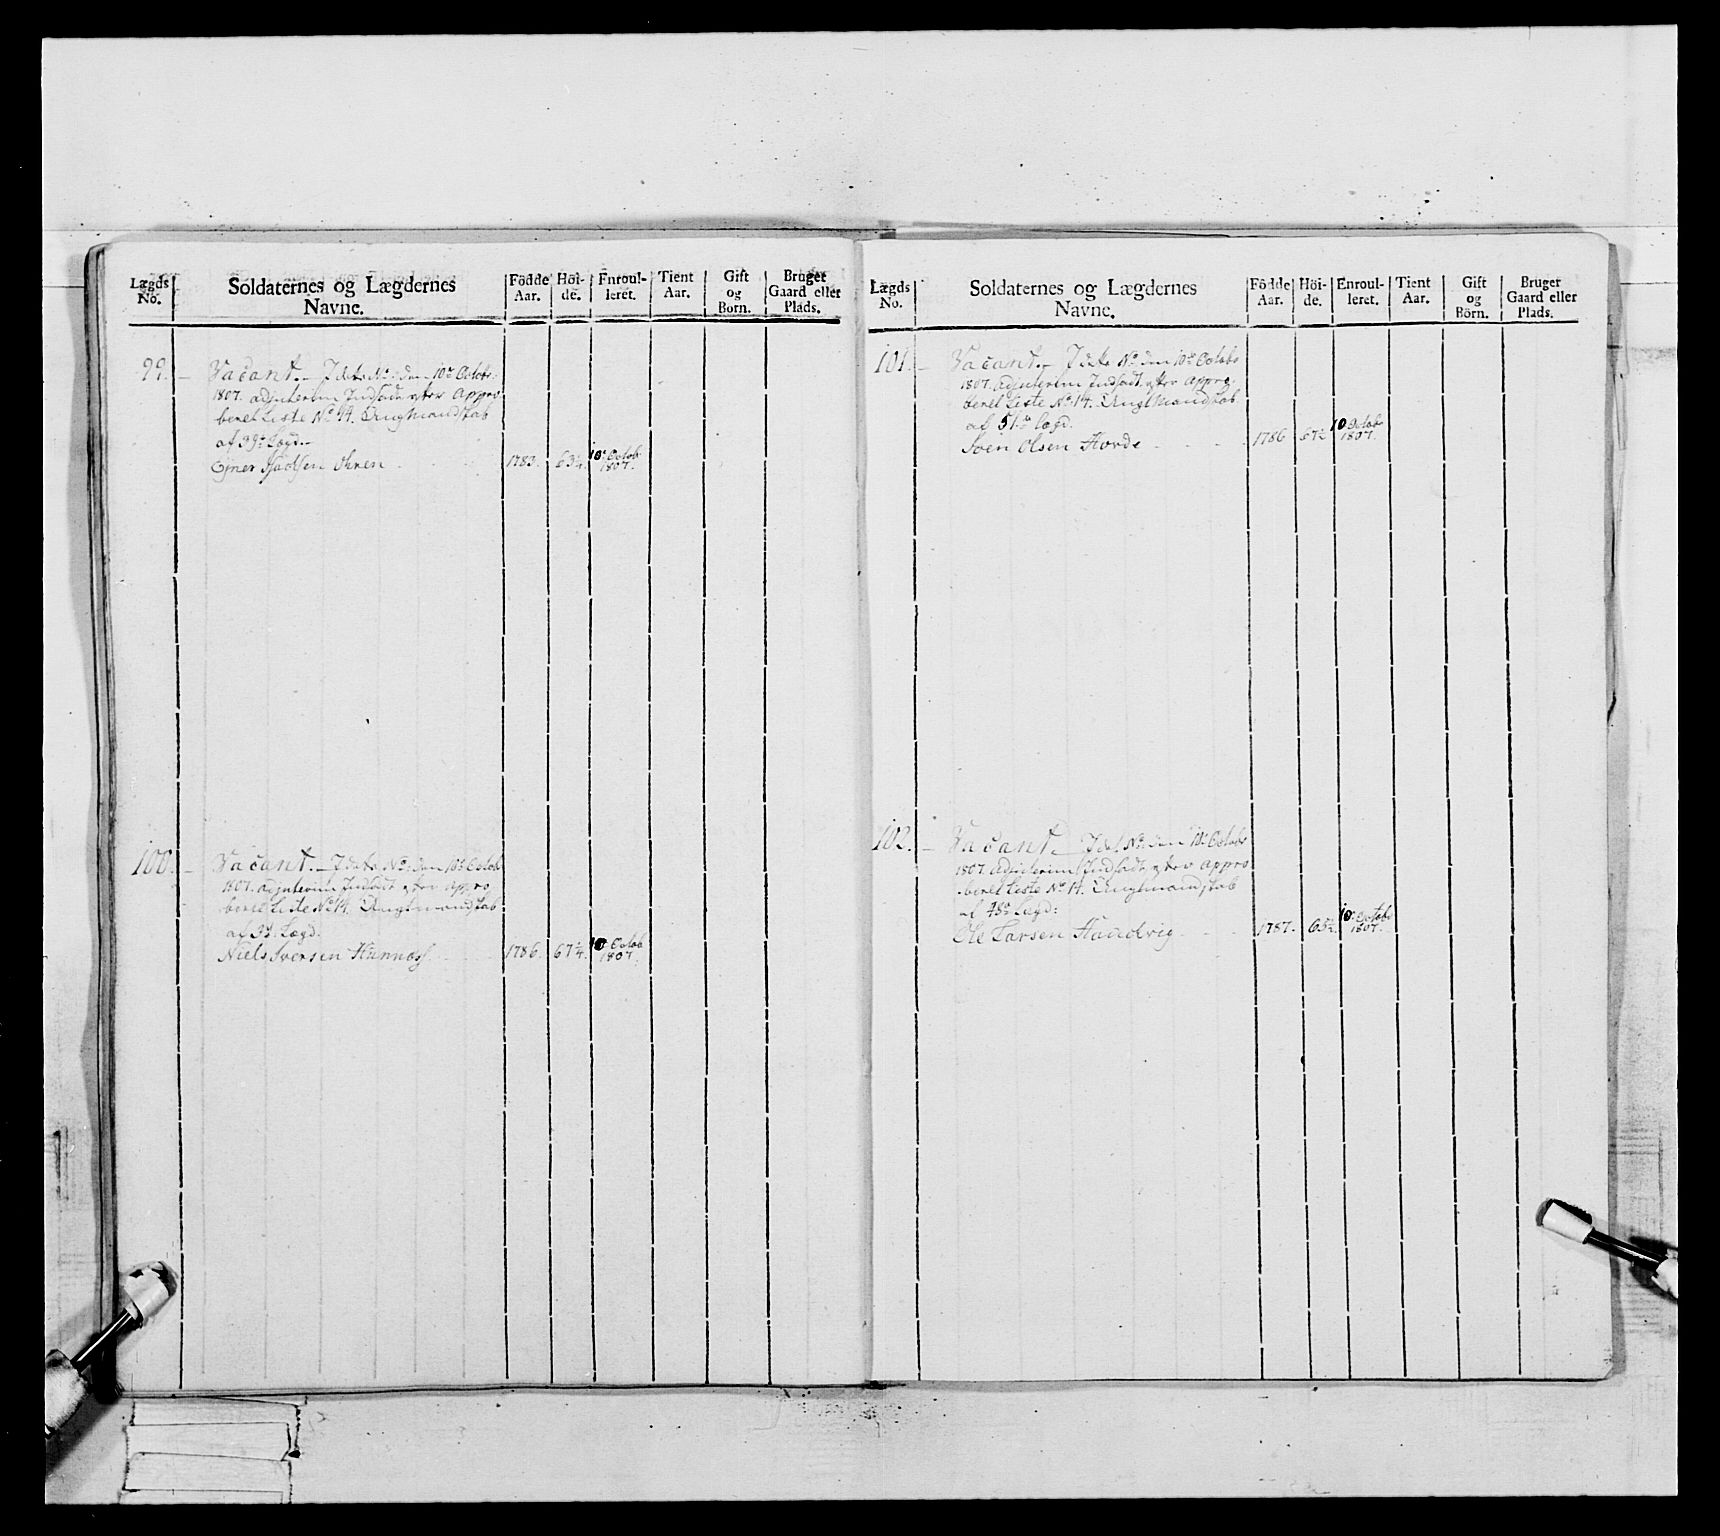 Lægds No.
Soldaternes og Lægdernes Navne.
Födde Aar.
Höi-de.
Enroul-leret.
Tient Aar.
Gift og Börn.
Bruger Gaard eller Plads.
99. – Vacant. – I dets No: den 10de Octobr:
1807. adjnterim Indsadt efter Appro
beret Liste No 14. Ungt Mandskab
af 39de Lægd. –
Ejner 1783. 63¼. 10de Octob 1807.
100. – Vacant. – I dets No: den 10de Octob
1807. adjnterim Indsadt efter Appro
beret Liste No 14. Ungt mandskab
af Lægd:
Niels Iversen 1786. 67¼. 10 Octob 1807.
Lægds No.
Soldaternes og Lægdernes Navne.
Födde Aar.
Höi-de.
Enroul-leret.
Tient Aar.
Gift og Börn.
Bruger Gaard eller Plads.
101. – Vacant. – I dets No: den 10de Octobr
1807. adjnterim Indsadt efter Appro-
beret Liste No 14. Ungt Mandskab
af 51de Lægd.
Sven Olsen Hovde 1786 67½ 10 Octob 1807.
102. – Vacant. – I det No: den 10de Octobr
1807. adjnterim Indsadt efter Appro
beret Liste No 14. Ungt mandskab
af 78de Lægd:
Ole Larsen Handvig 1787. 65½. 10 Octobr 1807.